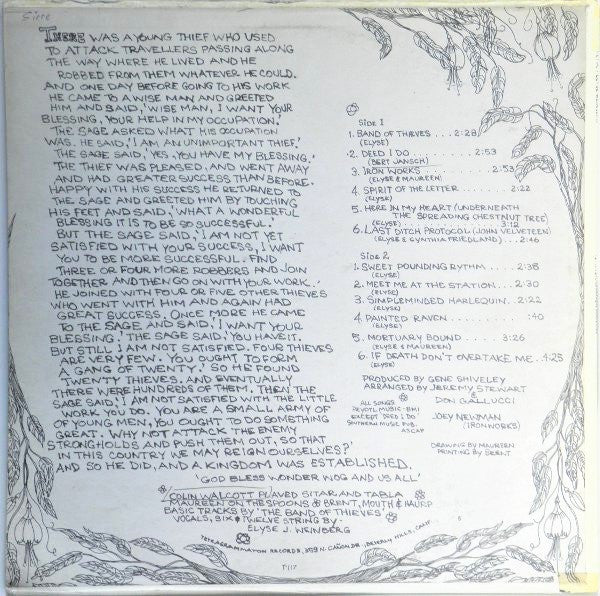 Sire
THERE WAS A YOUNG THIEF WHO USED
TO ATTACK TRAVELLERS PASSING ALONG
THE WAY WHERE HE LIVED AND HE
ROBBED FROM THEM WHATEVER HE COULD.
AND ONE DAY BEFORE GOING TO HIS WORK
HE CAME TO A WISE MAN AND GREETED
HIM AND SAID, 'WISE MAN, I WANT YOUR
BLESSING, YOUR HELP IN MY OCCUPATION.'
THE SAGE ASKED WHAT HIS OCCUPATION
WAS. HE SAID, 'I AM AN UNIMPORTANT THIEF.'
THE SAGE SAID, 'YES, YOU HAVE MY BLESSING.'
THE THIEF WAS PLEASED, AND WENT AWAY
AND HAD GREATER SUCCESS THAN BEFORE.
HAPPY WITH HIS SUCCESS HE RETURNED TO
THE SAGE AND GREETED HIM BY TOUCHING
HIS FEET AND SAID, 'WHAT A WONDERFUL
BLESSING IT IS TO BE SO SUCCESSFUL.'
BUT THE SAGE SAID, 'I AM NOT YET
SATISFIED WITH YOUR SUCCESS, I WANT
YOU TO BE MORE SUCCESSFUL. FIND
THREE OR FOUR MORE ROBBERS AND JOIN
TOGETHER AND THEN GO ON WITH YOUR WORK.'
HE JOINED WITH FOUR OR FIVE OTHER THIEVES
WHO WENT WITH HIM AND AGAIN HAD
GREAT SUCCESS. ONCE MORE HE CAME
TO THE SAGE AND SAID, 'I WANT YOUR
BLESSING.' THE SAGE SAID, 'YOU HAVE IT.
BUT STILL I AM NOT SATISFIED. FOUR THIEVES
ARE VERY FEW. YOU OUGHT TO FORM
A GANG OF TWENTY.' SO HE FOUND
TWENTY THIEVES. AND EVENTUALLY
THERE WERE HUNDREDS OF THEM. THEN THE
SAGE SAID, 'I AM NOT SATISFIED WITH THE LITTLE
WORK YOU DO. YOU ARE A SMALL ARMY OF
OF YOUNG MEN, YOU OUGHT TO DO SOMETHING
GREAT. WHY NOT ATTACK THE ENEMY
STRONGHOLDS AND PUSH THEM OUT, SO THAT
IN THIS COUNTRY WE MAY REIGN OURSELVES?'
AND SO HE DID, AND A KINGDOM WAS ESTABLISHED.
'GOD BLESS WONDER WOG AND US ALL'
COLIN WALCOTT PLAYED SITAR AND TABLA
MAUREEN ON THE SPOONS & BRENT, MOUTH & HAURP
BASIC TRACKS BY 'THE BAND OF THIEVES'
VOCALS, SIX & TWELVE STRING BY-
ELYSE J. WEINBERG
TETRAGRAMMATON RECORDS, 359 N. CAÑON DR., BEVERLY HILLS, CALIF.
T-117
SIDE 1
1. BAND OF THIEVES . . . 2:28
(ELYSE)
2. DEED I DO . . . . . 2:53
(BERT JANSCH)
3. IRON WORKS . . . . . . 2:53
(ELYSE & MAUREEN)
4. SPIRIT OF THE LETTER . . . . . 2:22
(ELYSE)
5. HERE IN MY HEART (UNDERNEATH
THE SPREADING CHESTNUT TREE)
(ELYSE) . . . . 3:12
6. LAST DITCH PROTOCOL (JOHN VELVETEEN)
(ELYSE & CYNTHIA FRIEDLAND) . . . 2:46
SIDE 2
1. SWEET POUNDING RYTHM . . . 2:38
(ELYSE)
2. MEET ME AT THE STATION . . . . 2:30
(ELYSE)
3. SIMPLEMINDED HARLEQUIN . . 2:22
(ELYSE)
4. PAINTED RAVEN . . . . . . :40
(ELYSE)
5. MORTUARY BOUND . . . . 3:26
(ELYSE & MAUREEN)
6. IF DEATH DON'T OVERTAKE ME . . 4:23
(ELYSE)
PRODUCED BY GENE SHIVELEY
ARRANGED BY JEREMY STEWART
&
DON GALLUCCI
JOEY NEWMAN
(IRON WORKS)
ALL SONGS
MUSIC - BMI
EXCEPT DEED I DO
SOUTHERN MUSIC PUB.
ASCAP
DRAWING BY MAUREEN
PRINTING BY BRENT